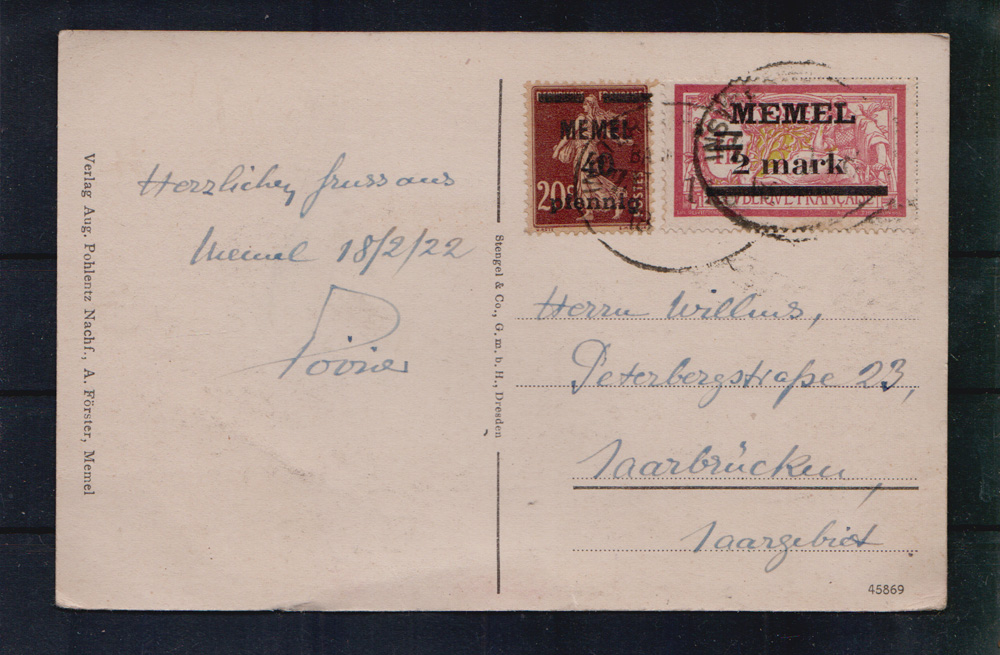 Verlag Aug. Pohlentz Nachf., A. Förster, Memel
Herzlichen Gruss aus
Memel 18/2/22
Poirier
Stengel & Co., G. m. b. H., Dresden
MEMEL
40
pfennig
20 c
POSTES
MEMEL
2 mark
REPUBLIQUE FRANÇAISE
Herrn Willms,
Peterbergstraße 23,
Saarbrücken,
Saargebiet
45869